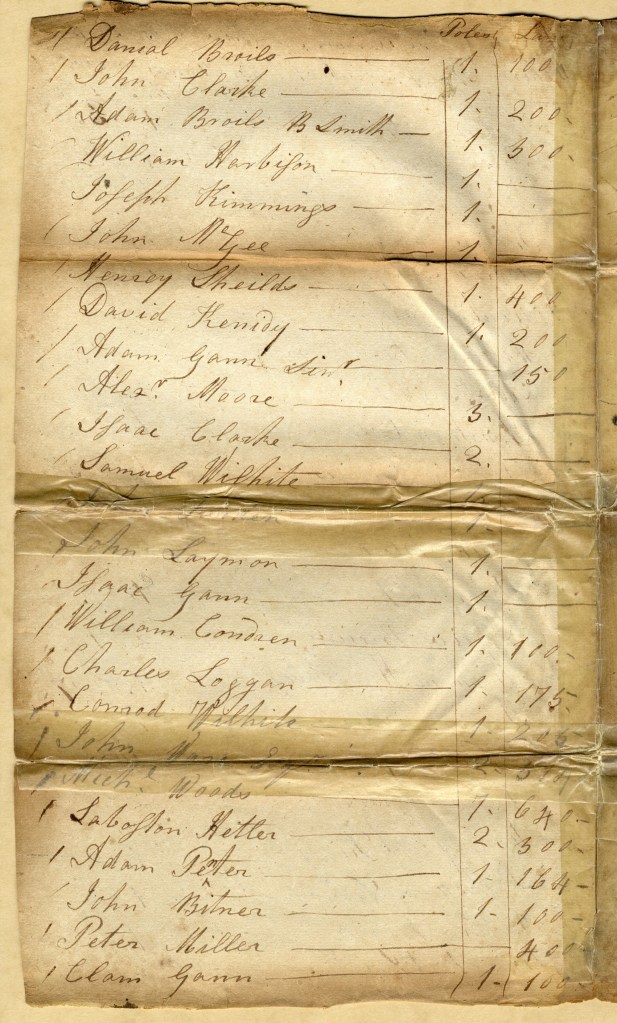 Poles
1 Danial Broils — 1. 100.
1 John Clarke — 1. 200.
1 Adam Broils B Smith — 1. 300.
William Harbison — 1. —
Joseph Kimmings — 1. —
1 John McGee — 1.
1 Henrey Sheilds — 1. 400
1 David Kenidy — 1. 200
1 Adam Gann Sinr. — 150
1 Alexr. Moore — 3. —
1 Isaac Clarke — 2. —
1 Samuel Wilhite
1.
1 John Laymon — 1. —
1 Isaac Gann — 1. —
1 William Condren — 1. 100.
1 Charles Loggan — 1. 175.
1 Conrod Wilhite 1. 206
1 John Esqr. 2.
1 Michl. Woods 1. 640.
1 Laboston Hetler — 2. 300.
1 Adam Penter — 1. 164
1 John Bitner — 1. 100
1 Peter Miller — 400
1 Clam Gann — 1. 100